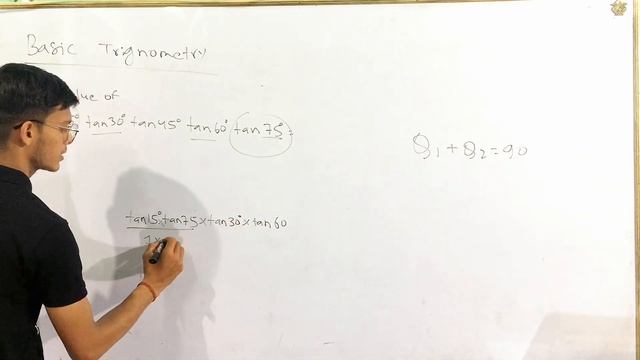 Basic Trignometry
lue of
tan30° tan45° tan60° tan75°=
θ1 + θ2 = 90
tan15° tan75 × tan30° × tan60
1×